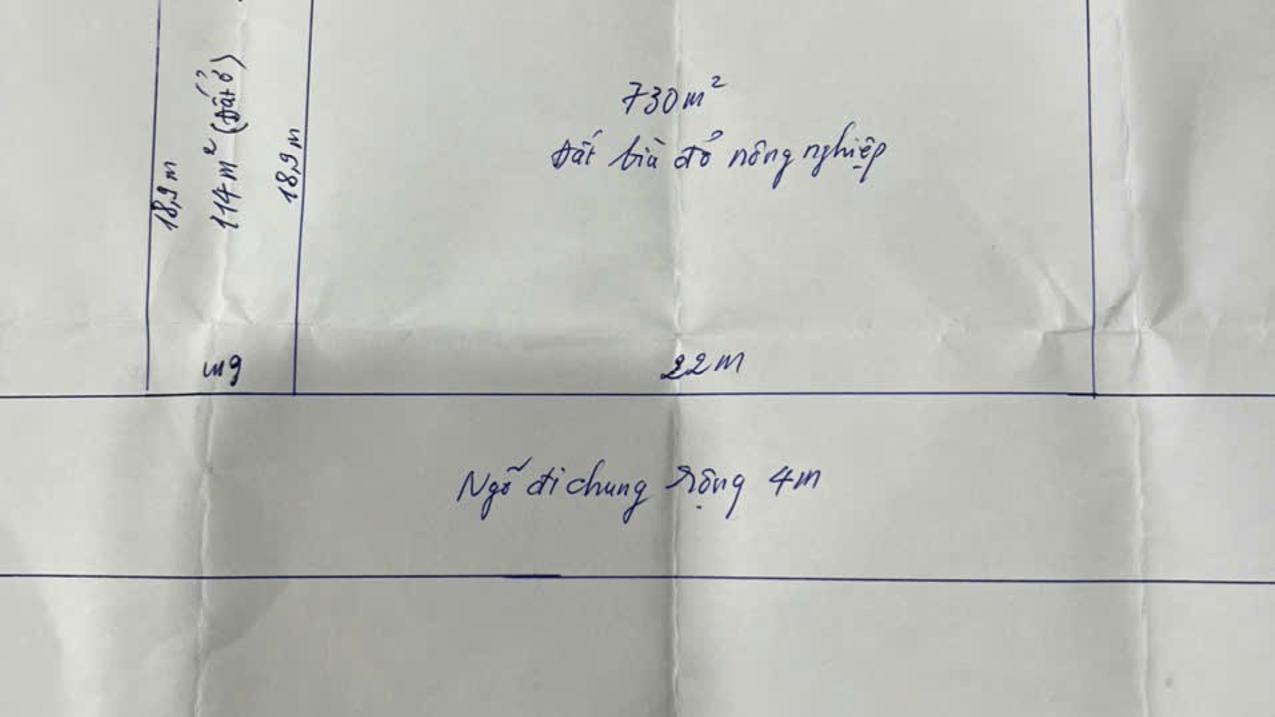 18,9 m
114 m² (Đất ở)
18,9 m
730 m²
Đất bià đỏ nông nghiệp
6m
22m
Ngõ đi chung rộng 4m